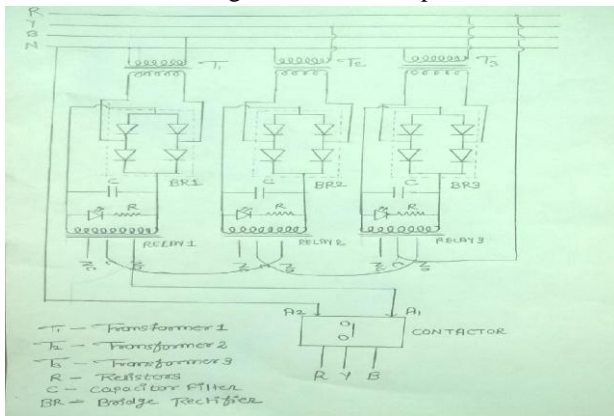 R
Y
B
N
T1 T2 T3
C C C
BR1 BR2 BR3
R R R
RELAY1 RELAY2 RELAY3
A2 A1
CONTACTOR
R Y B
T1 - Transformer 1
T2 - Transformer 2
T3 - Transformer 3
R - Resistors
C - Capacitor Filter
BR - Bridge Rectifier